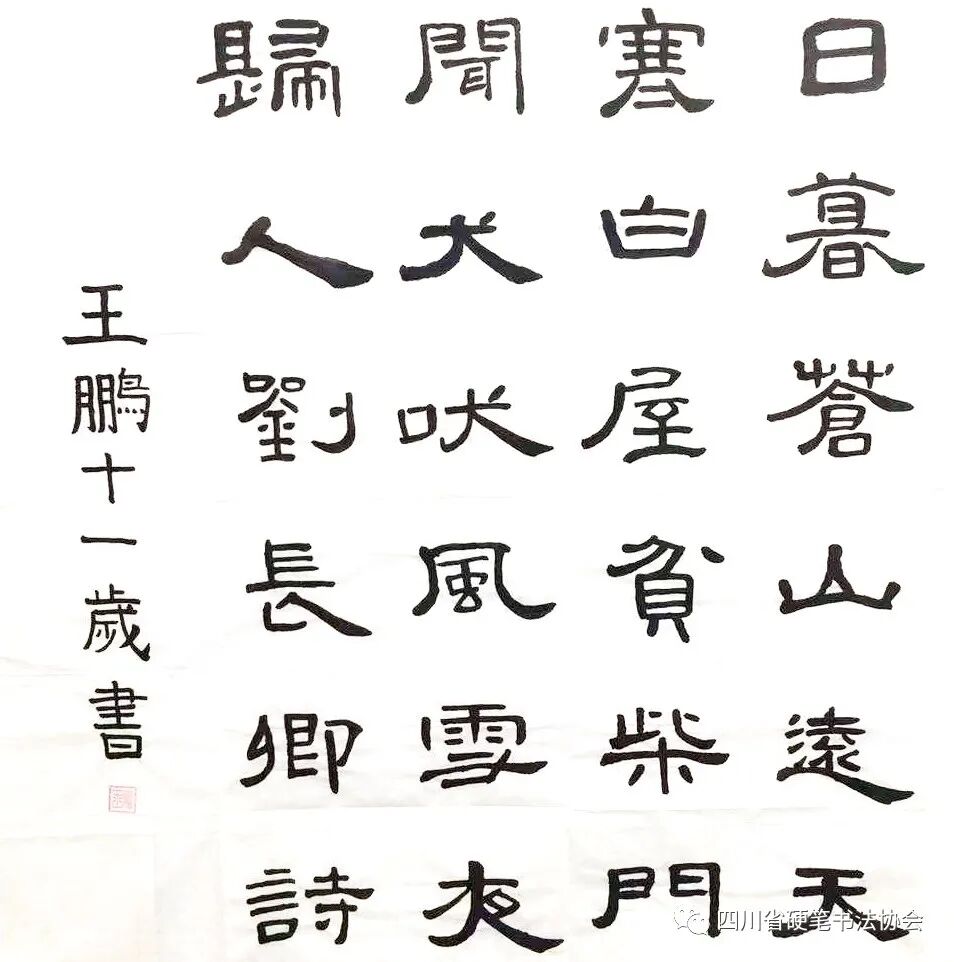 日暮蒼山遠天
寒白屋貧柴門
聞犬吠風雪夜
歸人劉長卿詩
王鵬十一歲書
四川省硬笔书法协会